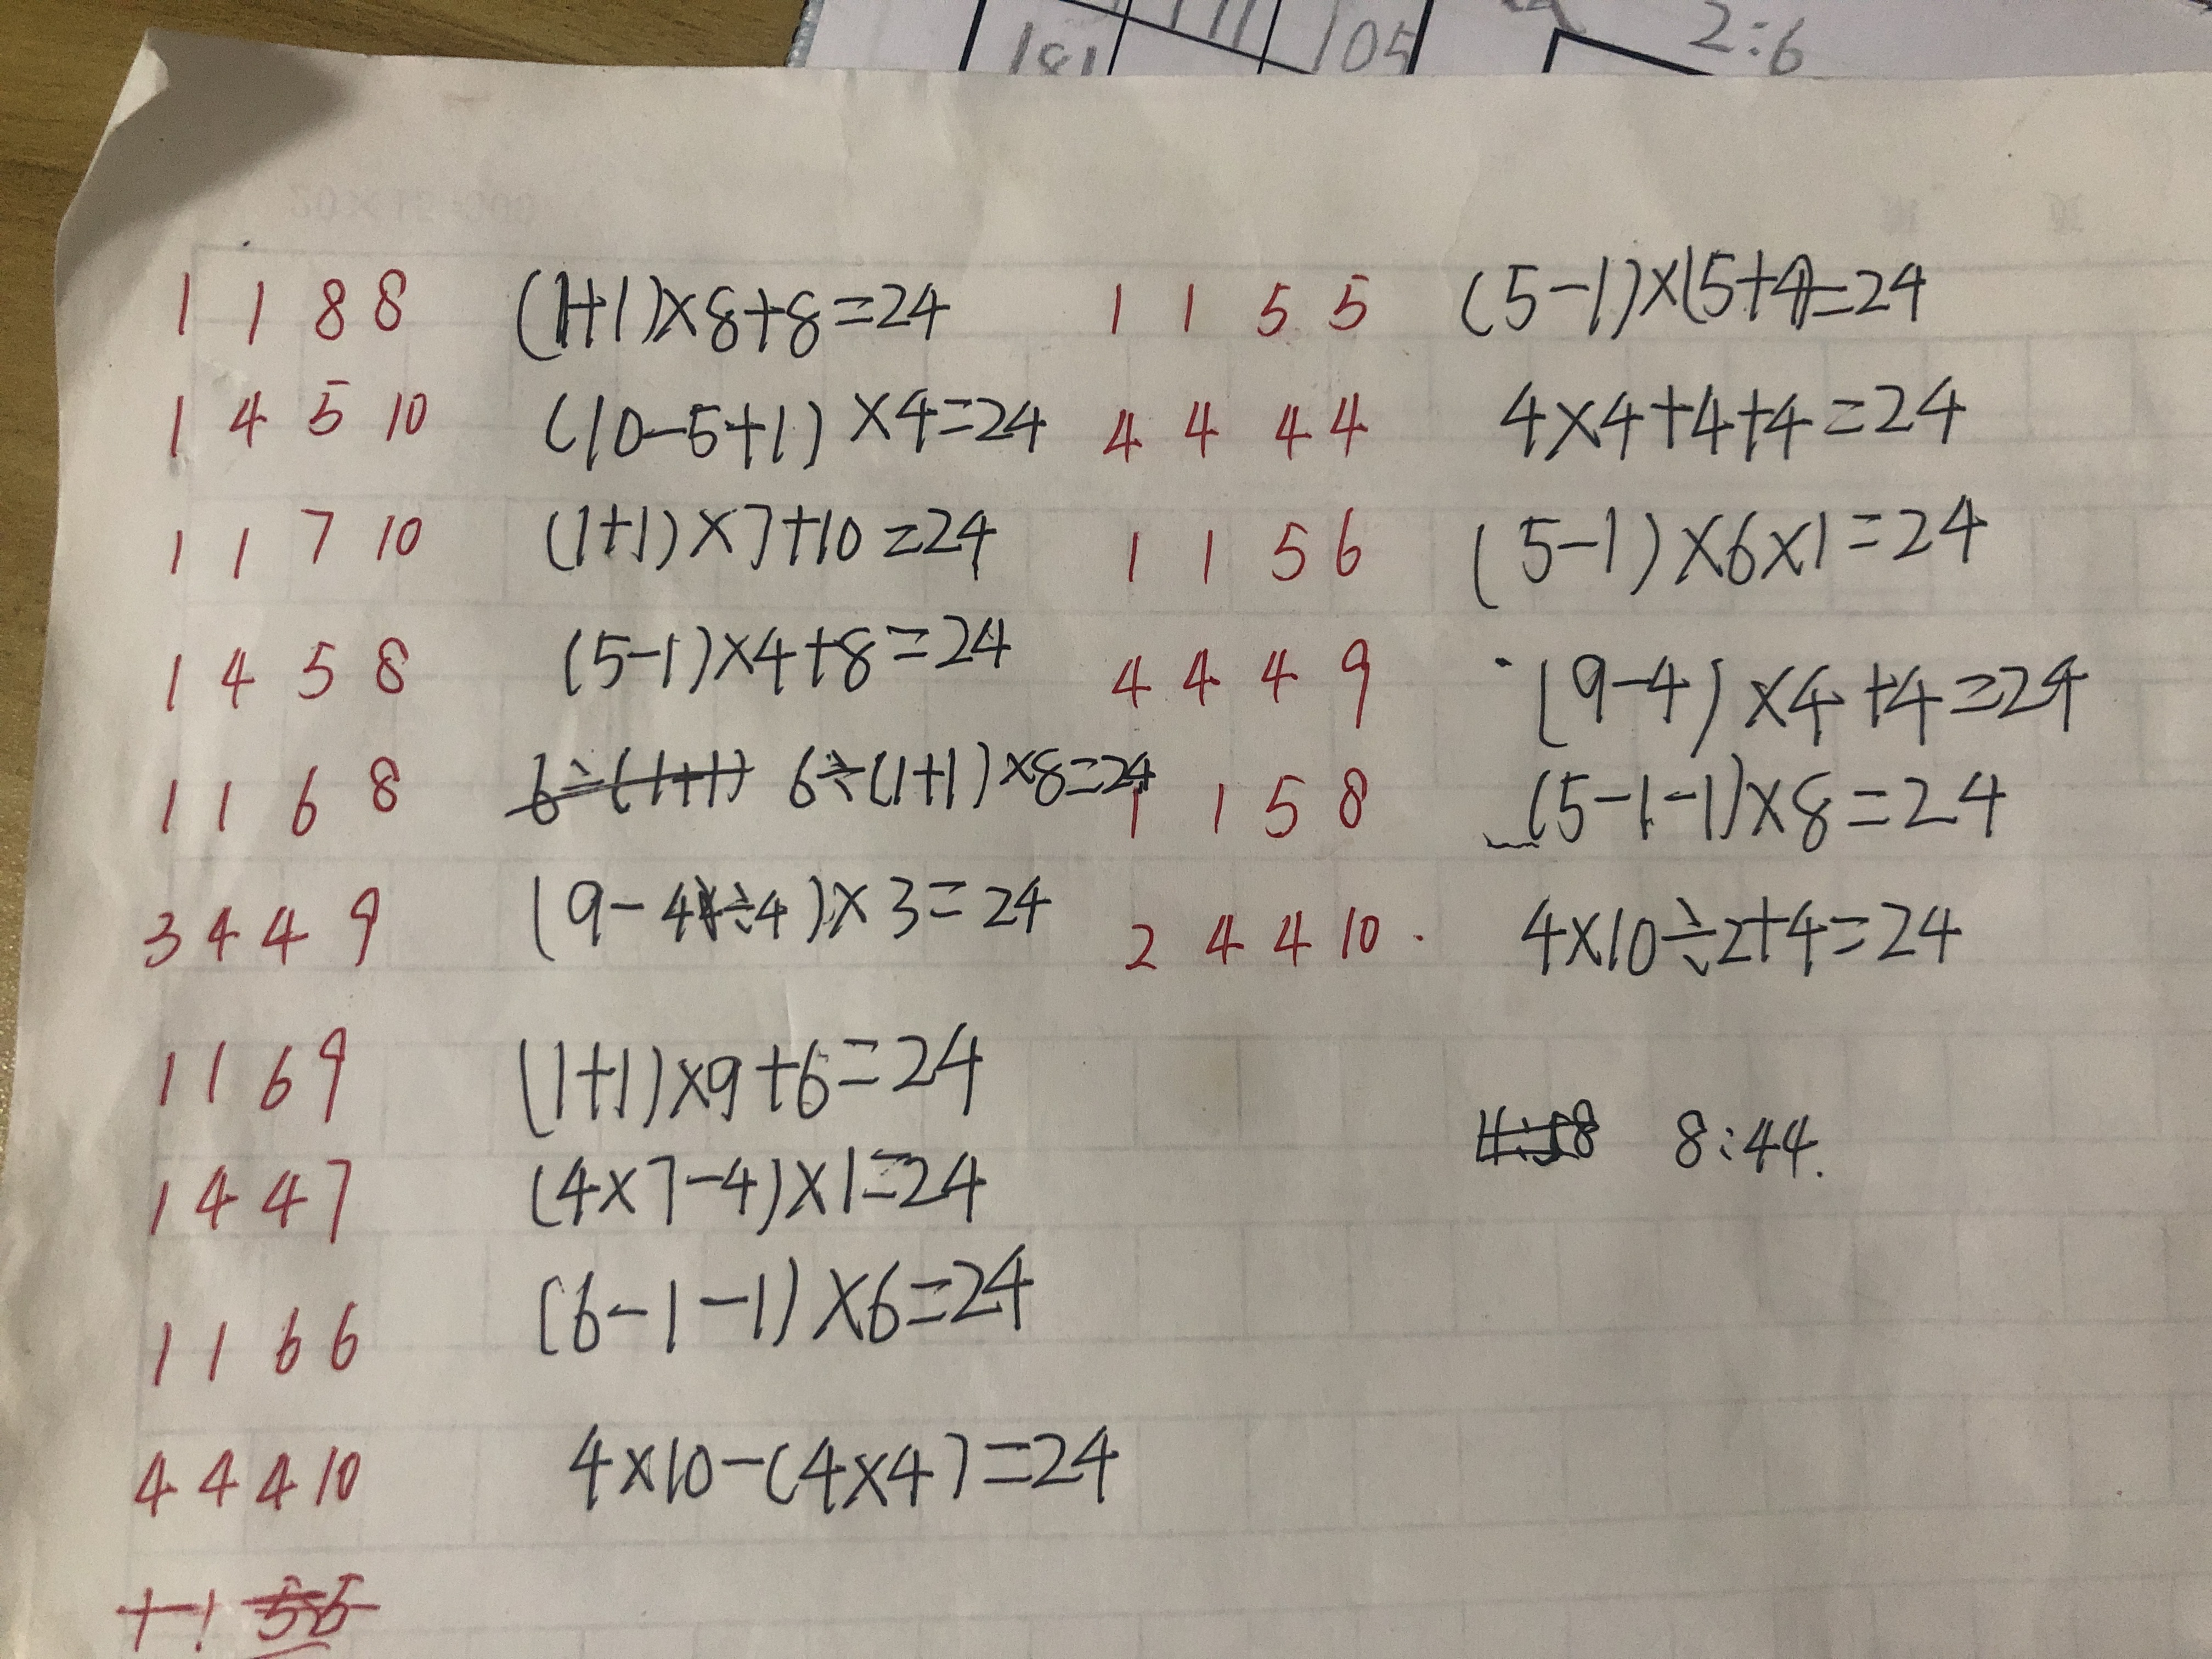 1 1 8 8 (1+1)×8+8=24 1 1 5 5 (5-1)×(5+1)=24
1 4 5 10 (10-5+1)×4=24 4 4 4 4 4×4+4+4=24
1 1 7 10 (1+1)×7+10=24 1 1 5 6 (5-1)×6×1=24
1 4 5 8 (5-1)×4+8=24 4 4 4 9 (9-4)×4+4=24
1 1 6 8 6÷(1+1)×8=24 1 1 5 8 (5-1-1)×8=24
3 4 4 9 (9-4÷4)×3=24 2 4 4 10 4×10÷2+4=24
1 1 6 9 (1+1)×9+6=24
1 4 4 7 (4×7-4)×1=24 8:44
1 1 6 6 (6-1-1)×6=24
4 4 4 10 4×10-(4×4)=24
2:6